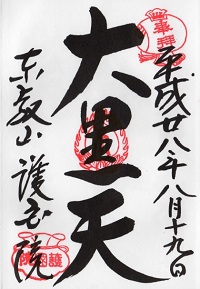 平成廿八年八月十九日
大黒天
東叡山 護国院